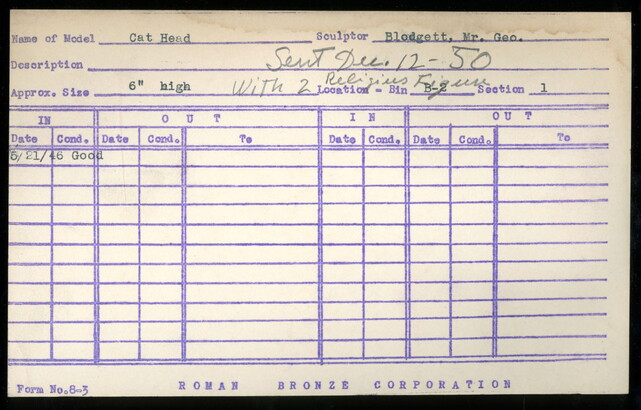 Name of Model Cat Head Sculptor Blodgett, Mr. Geo.
Description Sent Dec. 12-50
Approx. Size 6" high With 2 Religius Figure Location - Bin B-2 Section 1
IN OUT IN OUT
Date Cond. Date Cond. To Date Cond. Date Cond. To
5/21/46 Good
Form No.8-3 ROMAN BRONZE CORPORATION